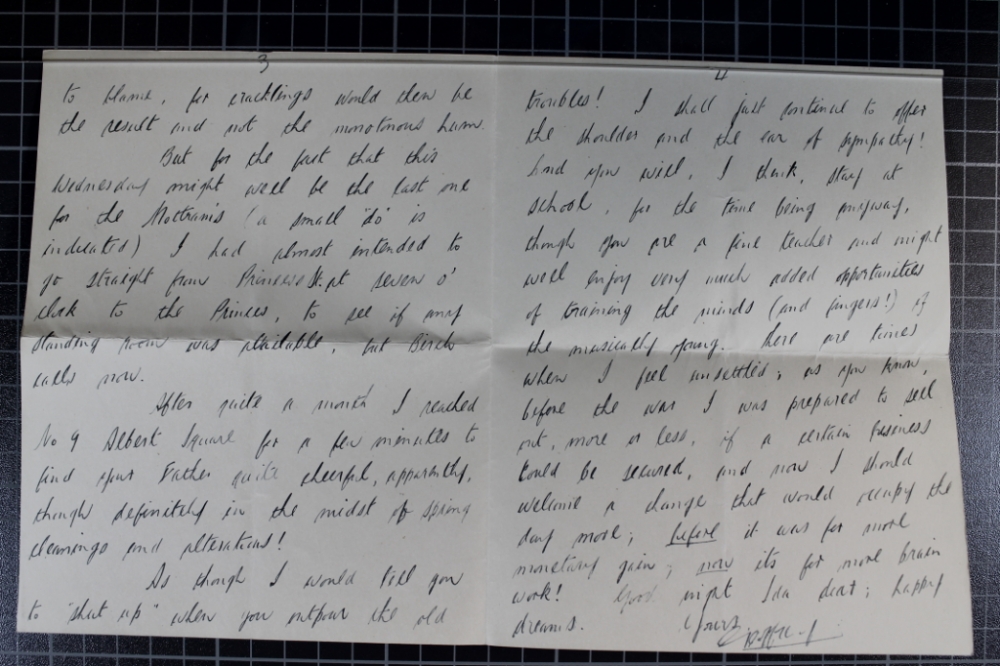 3
to blame, for cracklings would then be
the result and not the monotonous hum.
But for the fact that this
Wednesday might well be the last one
for the Mottrams (a small "do" is
indicated) I had almost intended to
go straight from Princess St. at seven o'
clock to the Princes, to see if any
standing room was available, but Birch
calls now.
After quite a month I reached
No 9 Albert Square for a few minutes to
find your Father quite cheerful, apparently,
though definitely in the midst of spring
cleanings and alterations!
As though I would tell you
to "shut up" when you outpour the old
4
troubles! I shall just continue to offer
the shoulder and the ear of sympathy!
And you will, I think, stay at
school, for the time being anyway,
though you are a fine teacher and might
well enjoy very much added opportunities
of training the minds (and fingers!) of
the musically young. There are times
when I feel unsettled; as you know,
before the war I was prepared to sell
out, more or less, if a certain business
could be secured, and now I should
welcome a change that would occupy the
day more; before it was for more
monetary gain, now its for more brain
work! Good night Ida dear; happy
dreams. Yours